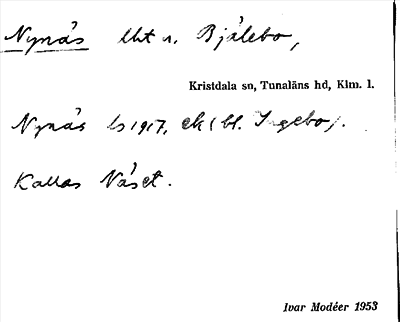 Nynäs lht u. Bjälebo,
Kristdala sn, Tunaläns hd, Klm. l.
Nynäs ls 1917, ek (bl. Ingebo).
Kallas Näset.
Ivar Modéer 1953